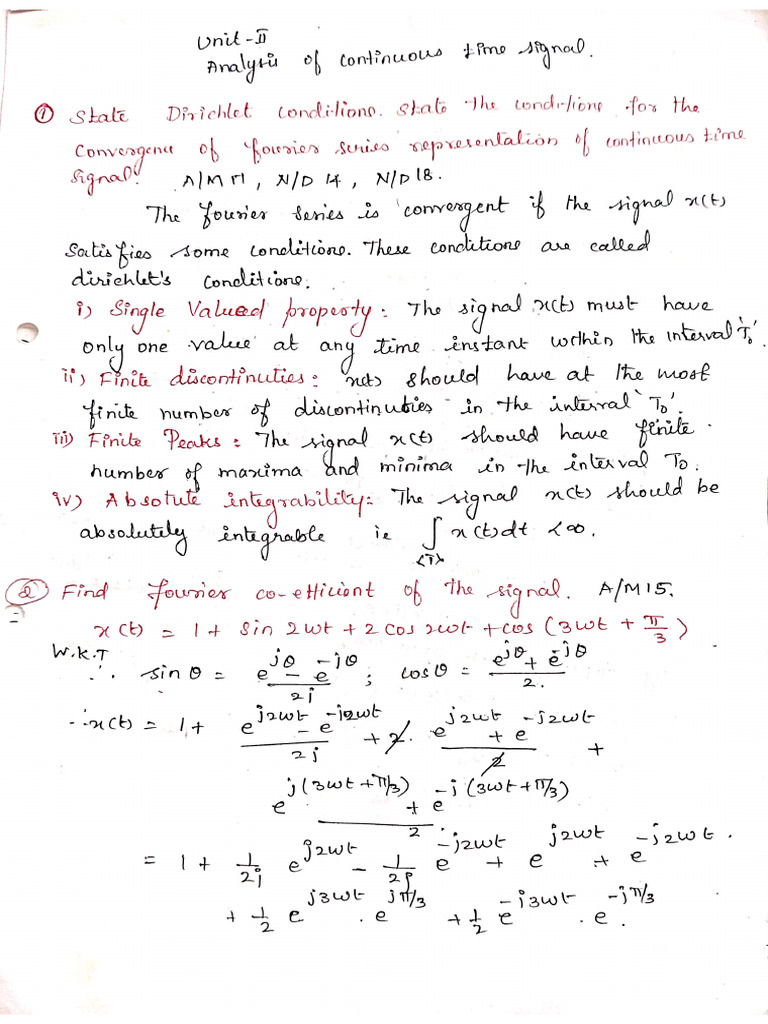 Unit-II
Analysis of continuous time signal.
① State Dirichlet conditions. State the conditions for the
Convergence of fourier series representation of continuous time
signal. A/M 17, N/D 14, N/D 18.
The fourier series is convergent if the signal x(t)
Satisfies some conditions. These conditions are called
dirichlet's conditions.
i) Single Valued property: The signal x(t) must have
only one value at any time instant within the interval 'T₀'
ii) Finite discontinuties: x(t) should have at the most
finite number of discontinuties in the interval 'T₀'.
iii) Finite Peaks: The signal x(t) should have finite
number of maxima and minima in the interval T₀.
iv) Absolute integrability: The signal x(t) should be
absolutely integrable ie ∫<T> x(t)dt < ∞.
② Find fourier co-efficient of the signal. A/M 15.
x(t) = 1 + sin 2wt + 2 cos 2wt + cos (3wt + π/3)
W.K.T
∴ sin θ = (e^{jθ} - e^{-jθ})/2j ; cos θ = (e^{jθ} + e^{-jθ})/2.
∴ x(t) = 1 + (e^{j2wt} - e^{-j2wt})/2j + 2. (e^{j2wt} + e^{-j2wt})/2 +
(e^{j(3wt+π/3)} + e^{-j(3wt+π/3)})/2.
= 1 + 1/2j e^{j2wt} - 1/2j e^{-j2wt} + e^{j2wt} + e^{-j2wt}.
+ 1/2 e^{j3wt} . e^{jπ/3} + 1/2 e^{-j3wt} . e^{-jπ/3}.